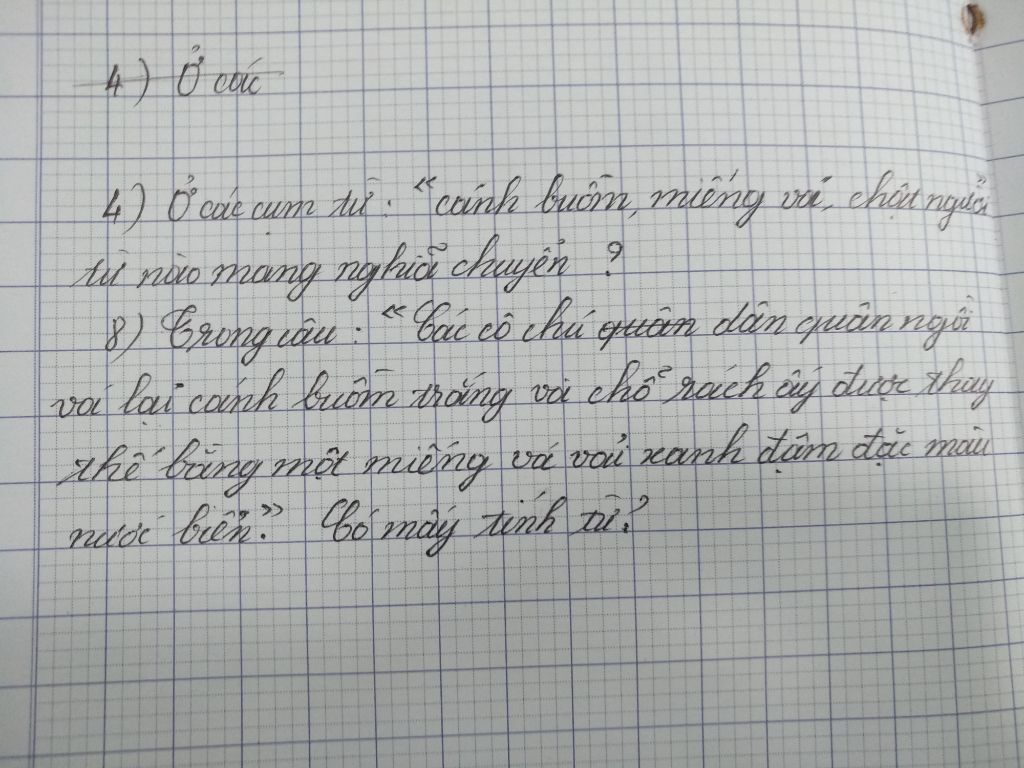 4) Ở các
4) Ở các cụm từ: "cánh buồm, miếng vá, chột người
từ nào mang nghĩa chuyển ?
8) Trong câu: "Các cô chú quân dân quân ngồi
vá lại cánh buồm trắng và chỗ rách ấy được thay
thế bằng một miếng vá vải xanh đậm đặc màu
nước biển." Có mấy tính từ?